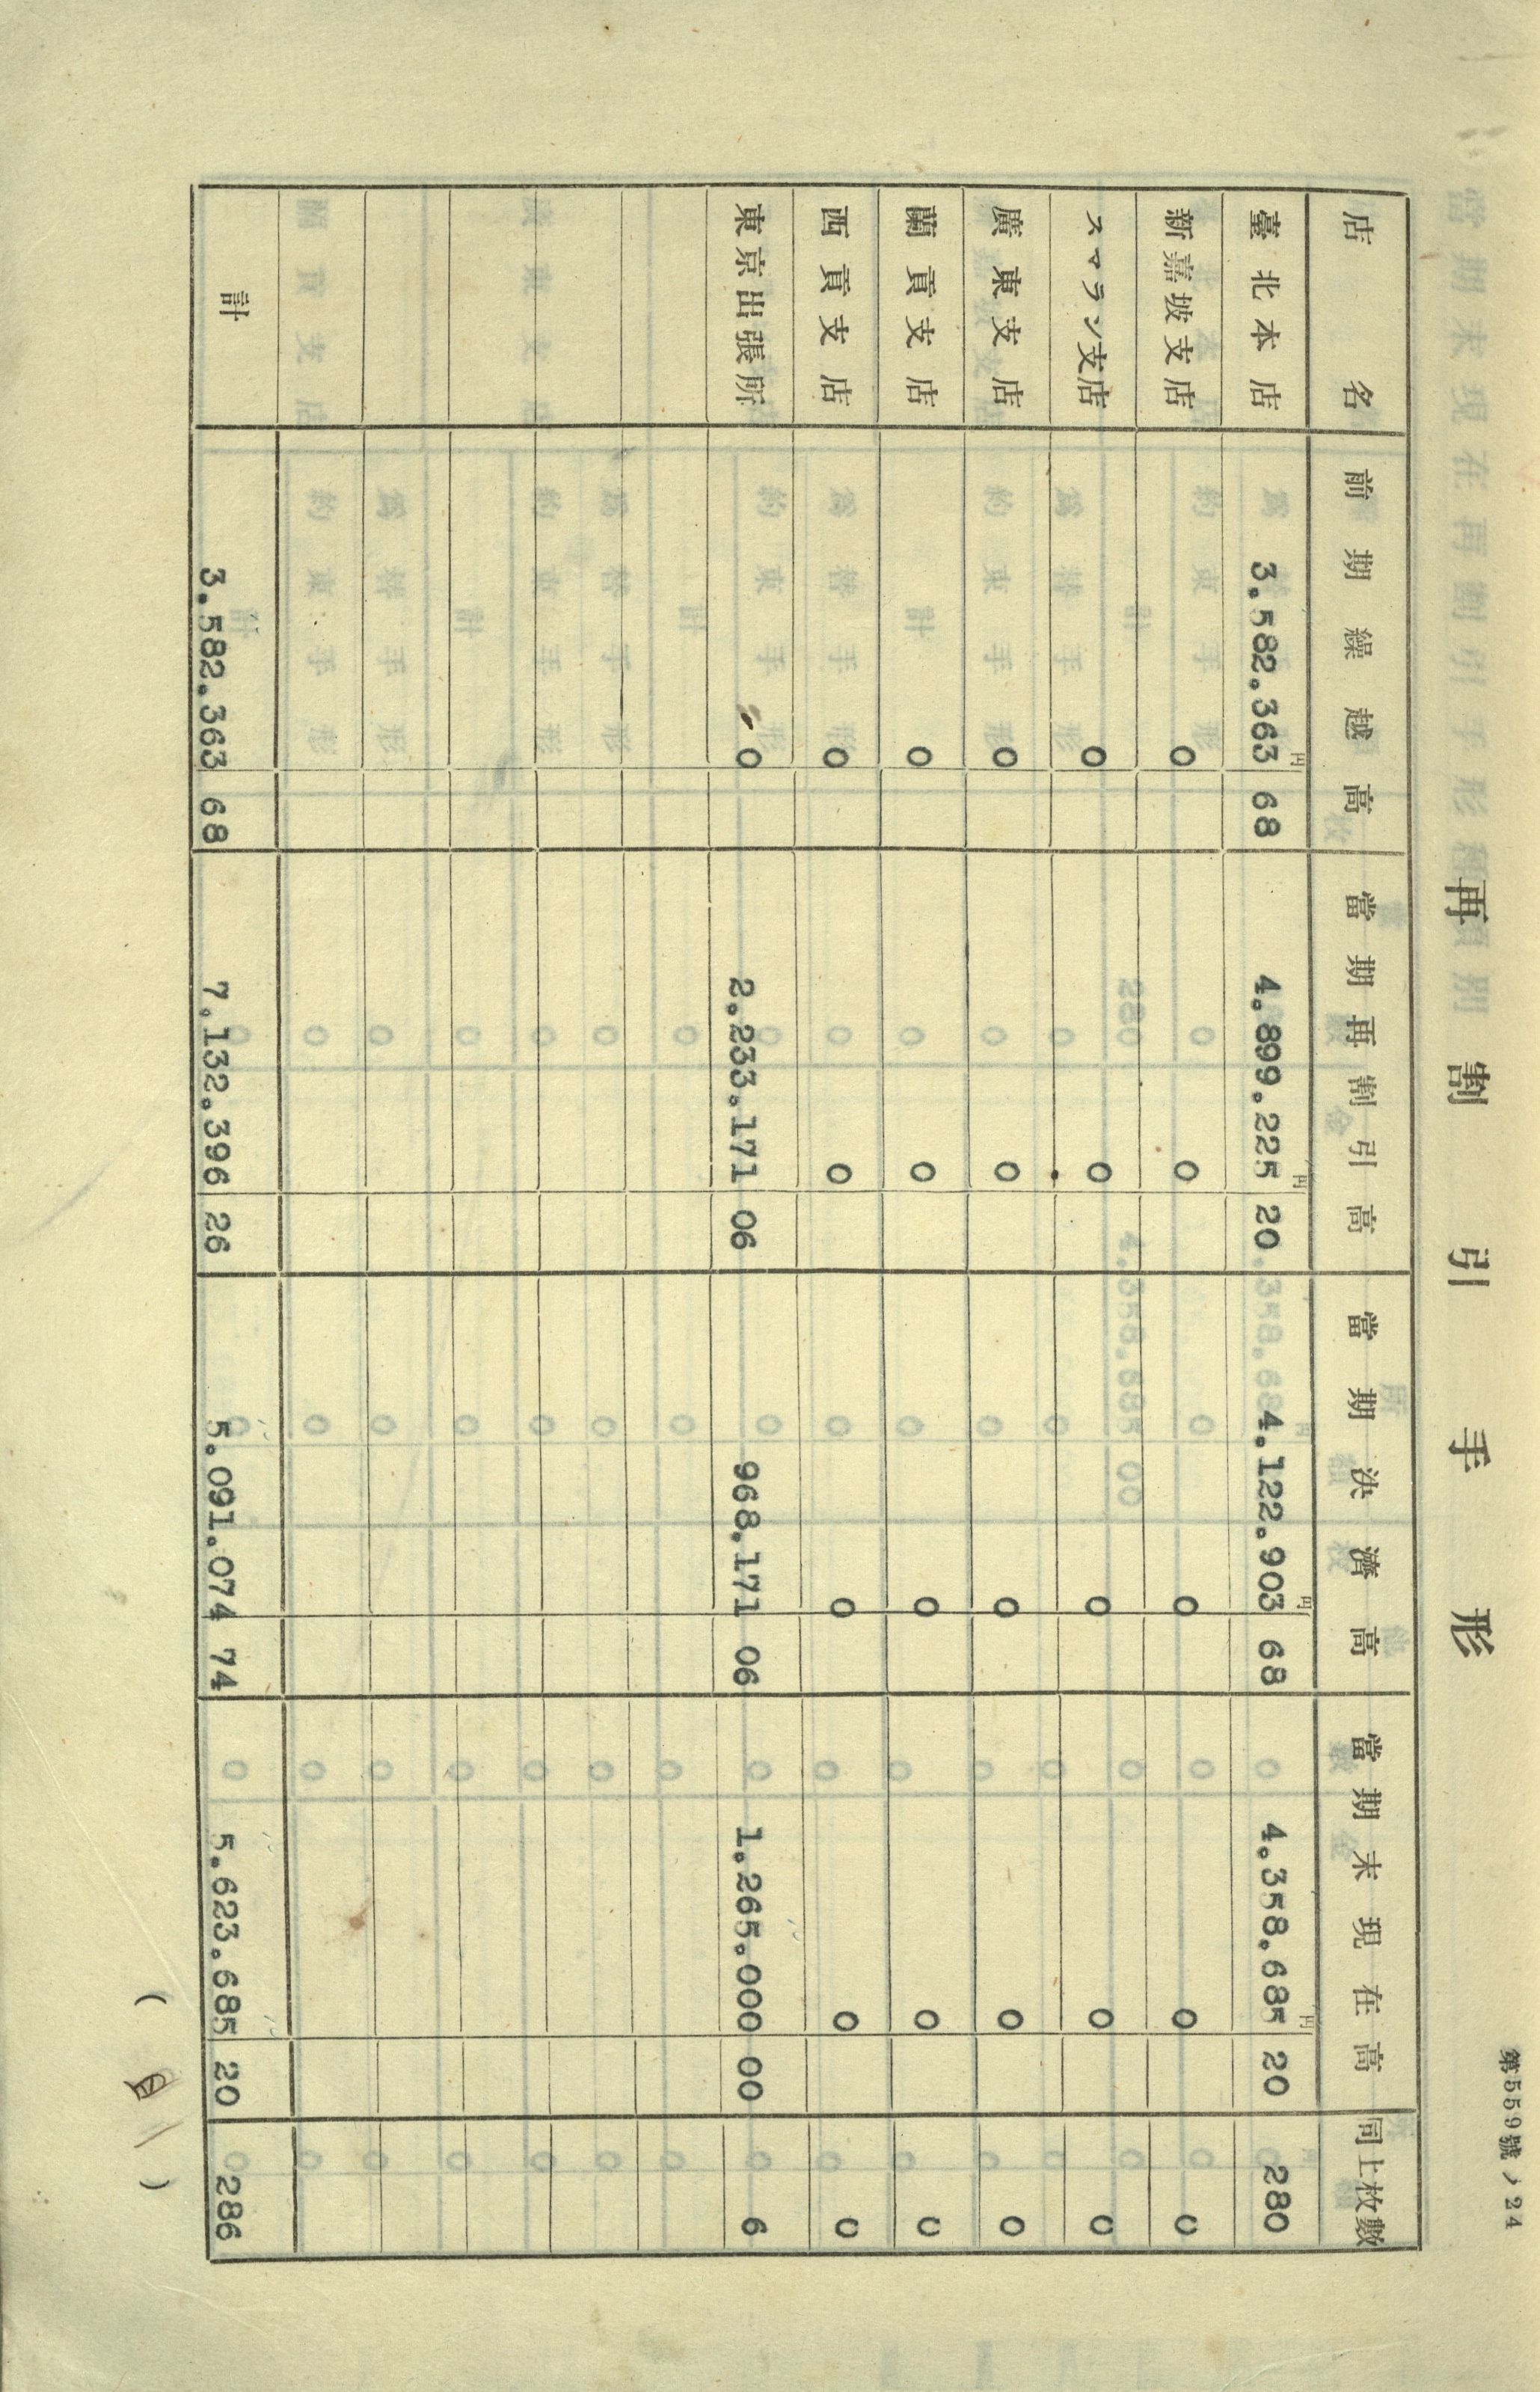 第559號ノ24
再割引手形
店名 前期繰越高 當期再割引高 當期決濟高 當期末現在高 同上枚數
円 円 円 円
臺北本店 3.582.363 68 4.899.225 20 4.122.903 68 4.358.685 20 280
新嘉坡支店 0 0 0 0 0
スマラン支店 0 0 0 0 0
廣東支店 0 0 0 0 0
蘭貢支店 0 0 0 0 0
西貢支店 0 0 0 0 0
東京出張所 0 2.233.171 06 968.171 06 1.265.000 00 6
計 3.582.363 68 7.132.396 26 5.091.074 74 5.623.685 20 286